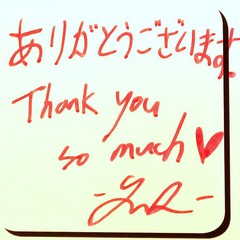 ありがとうございます
Thank you
so much ♥